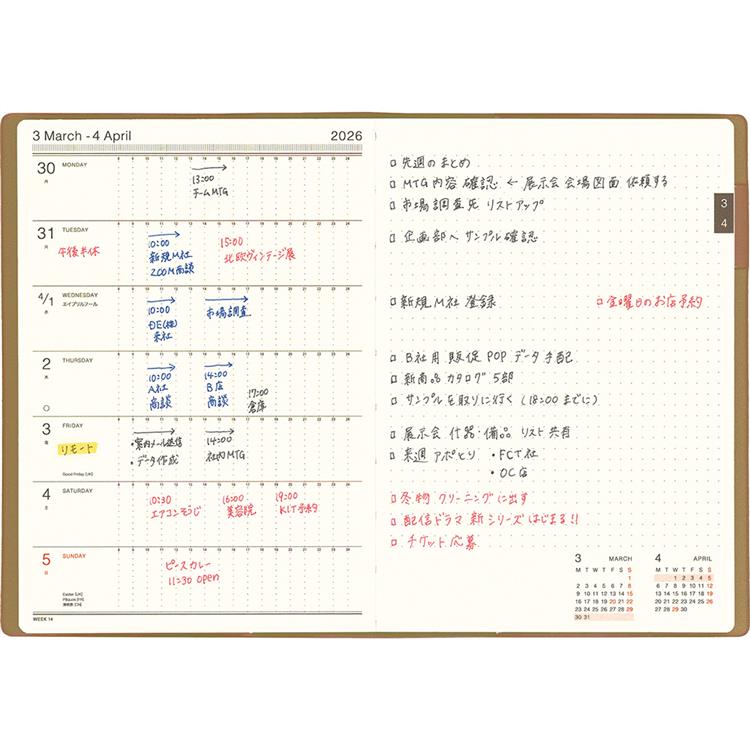 3 March - 4 April 2026
30 MONDAY
月
13:00
チームMTG
31 TUESDAY
火
午後半休
10:00
新規M社
ZOOM商談
15:00
北欧ヴィンテージ展
4/1 WEDNESDAY
水 エイプリルフール
10:00
DE(株)
来社
市場調査
2 THURSDAY
木
10:00
A社
商談
14:00
B店
商談
17:00
倉庫
3 FRIDAY
金
リモート
Good Friday [UK]
・案内メール送信
・データ作成
14:00
社内MTG
4 SATURDAY
土
10:30
エアコンそうじ
16:00
美容院
19:00
KIT予約
5 SUNDAY
日
ピースカレー
11:30 open
Easter [UK]
WEEK 14
先週のまとめ
MTG内容 確認 ← 展示会会場図面 依頼する
市場調査先 リストアップ
企画部へ サンプル確認
新規M社 登録
金曜日のお店予約
B社用 販促POPデータ手配
新商品カタログ 5部
サンプルを取りに行く (18:00までに)
展示会 什器・備品 リスト共有
来週アポとり ・FCT社
・OC店
冬物 クリーニングに出す
配信ドラマ 新シリーズはじまる!!
チケット応募
3
4
3 MARCH
M T W T F S S
1
2 3 4 5 6 7 8
9 10 11 12 13 14 15
16 17 18 19 20 21 22
23 24 25 26 27 28 29
30 31
4 APRIL
M T W T F S S
1 2 3 4 5
6 7 8 9 10 11 12
13 14 15 16 17 18 19
20 21 22 23 24 25 26
27 28 29 30